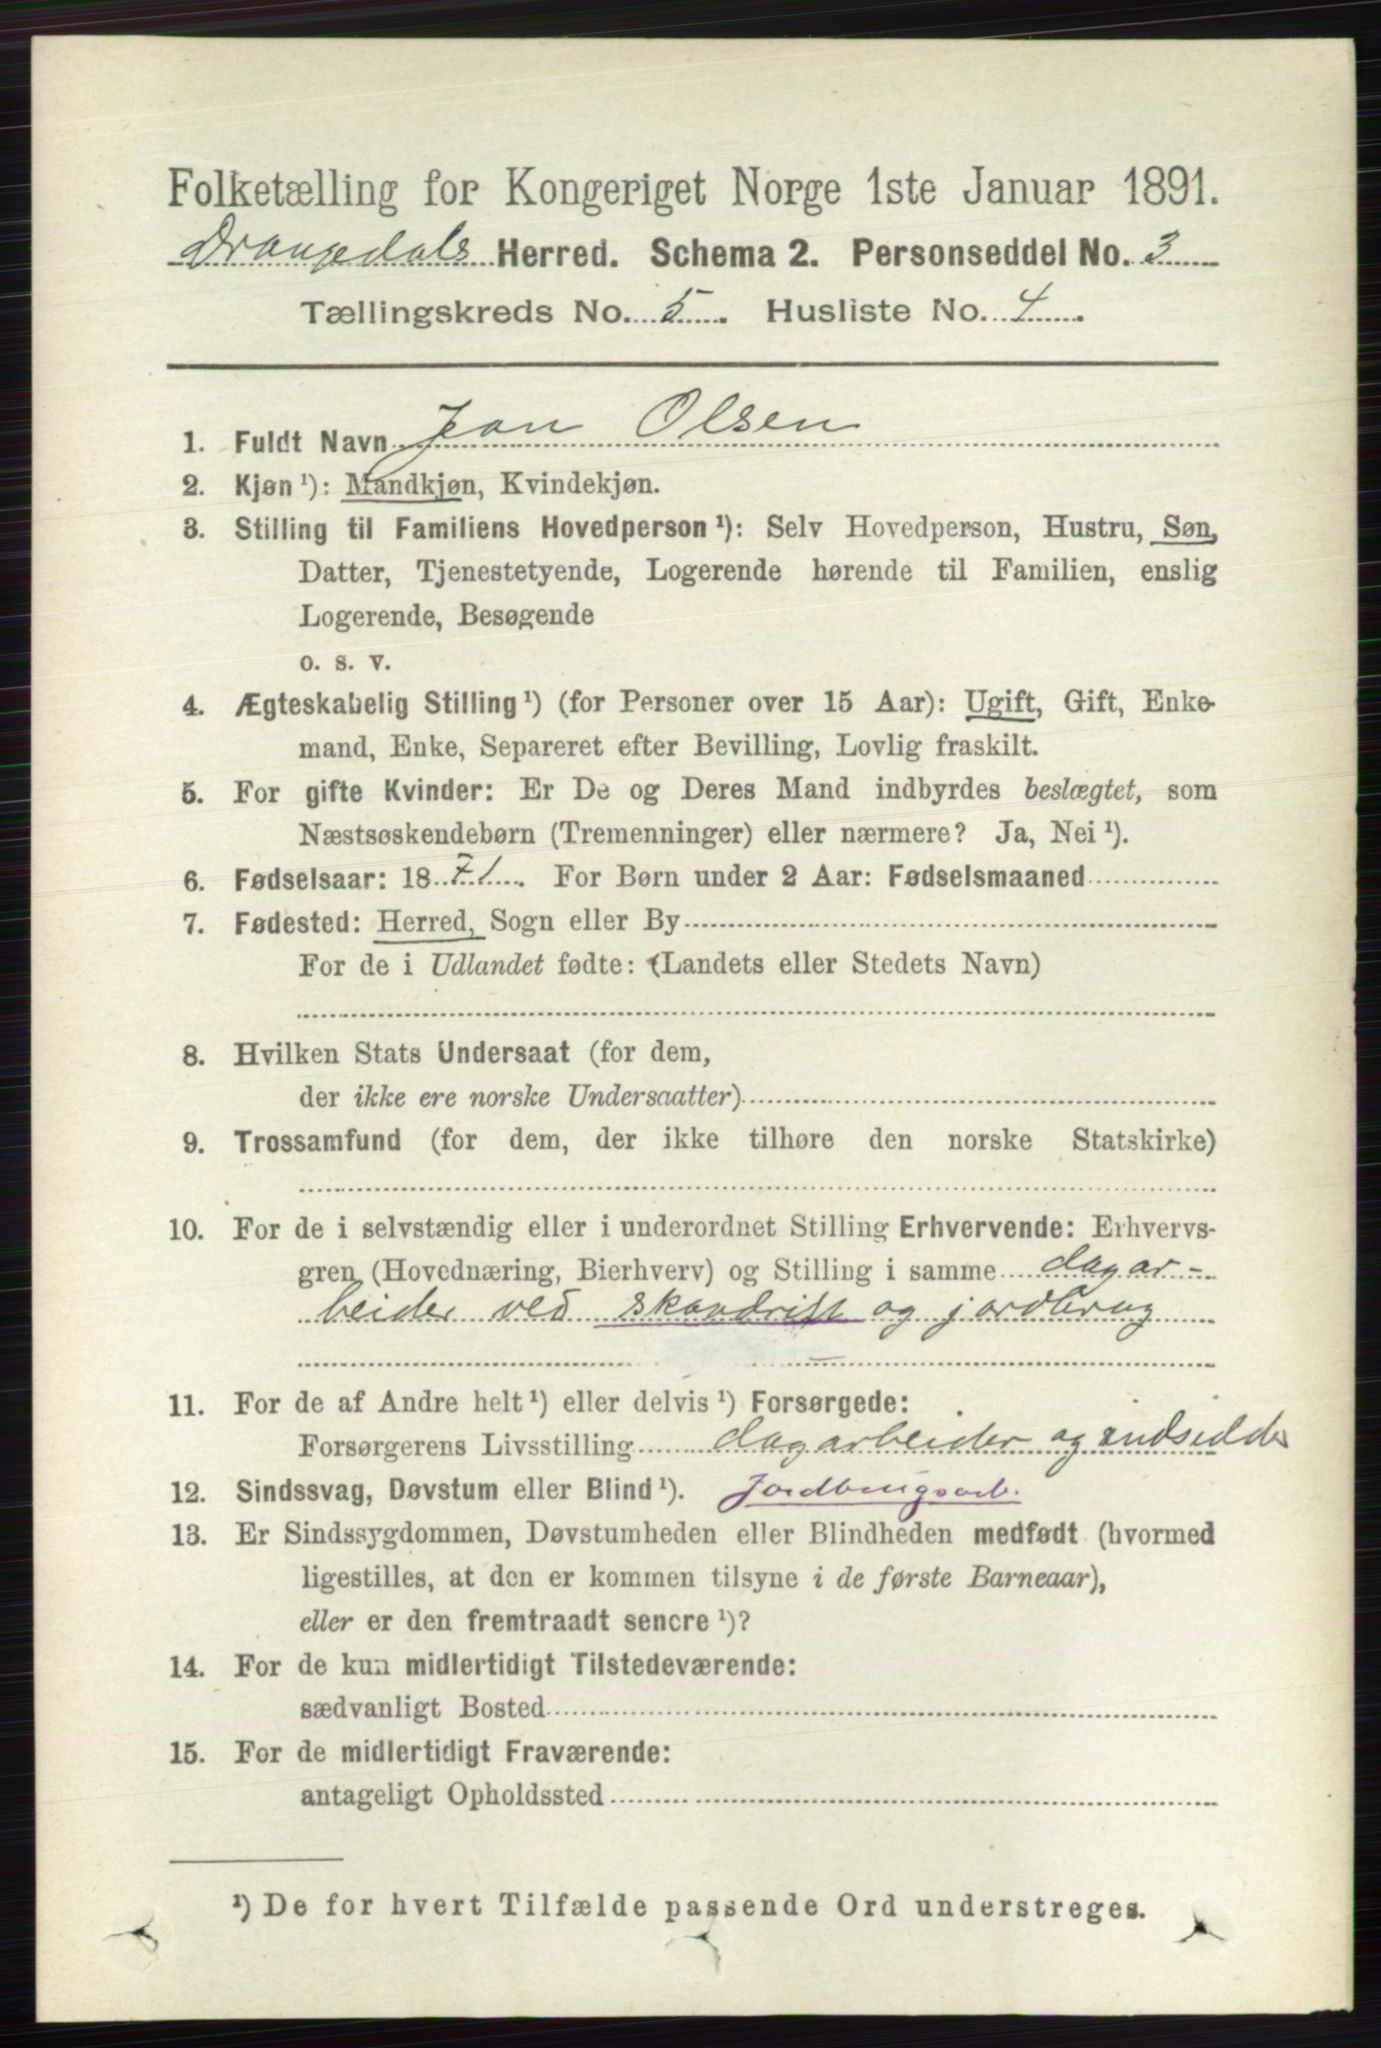 Folketælling for Kongeriget Norge 1ste Januar 1891.
Drangedals Herred. Schema 2. Personseddel No. 3
Tællingskreds No. 5. Husliste No. 4.
1. Fuldt Navn Jon Olsen
2. Kjøn ¹): Mandkjøn, Kvindekjøn.
3. Stilling til Familiens Hovedperson ¹): Selv Hovedperson, Hustru, Søn,
Datter, Tjenestetyende, Logerende hørende til Familien, enslig
Logerende, Besøgende
o. s. v.
4. Ægteskabelig Stilling ¹) (for Personer over 15 Aar): Ugift, Gift, Enke-
mand, Enke, Separeret efter Bevilling, Lovlig fraskilt.
5. For gifte Kvinder: Er De og Deres Mand indbyrdes beslægtet, som
Næstsøskendebørn (Tremenninger) eller nærmere? Ja, Nei ¹).
6. Fødselsaar: 1871. For Børn under 2 Aar: Fødselsmaaned
7. Fødested: Herred, Sogn eller By
For de i Udlandet fødte: (Landets eller Stedets Navn)
8. Hvilken Stats Undersaat (for dem,
der ikke ere norske Undersaatter)
9. Trossamfund (for dem, der ikke tilhøre den norske Statskirke)
10. For de i selvstændig eller i underordnet Stilling Erhvervende: Erhvervs-
gren (Hovednæring, Bierhverv) og Stilling i samme dagar-
beider ved skovdrift og jordbrug
11. For de af Andre helt ¹) eller delvis ¹) Forsørgede:
Forsørgerens Livsstilling dagarbeider og indsidder
12. Sindssvag, Døvstum eller Blind ¹). Jordbrugsarb.
13. Er Sindssygdommen, Døvstumheden eller Blindheden medfødt (hvormed
ligestilles, at den er kommen tilsyne i de første Barneaar),
eller er den fremtraadt senere ¹)?
14. For de kun midlertidigt Tilstedeværende:
sædvanligt Bosted
15. For de midlertidigt Fraværende:
antageligt Opholdssted
¹) De for hvert Tilfælde passende Ord understreges.